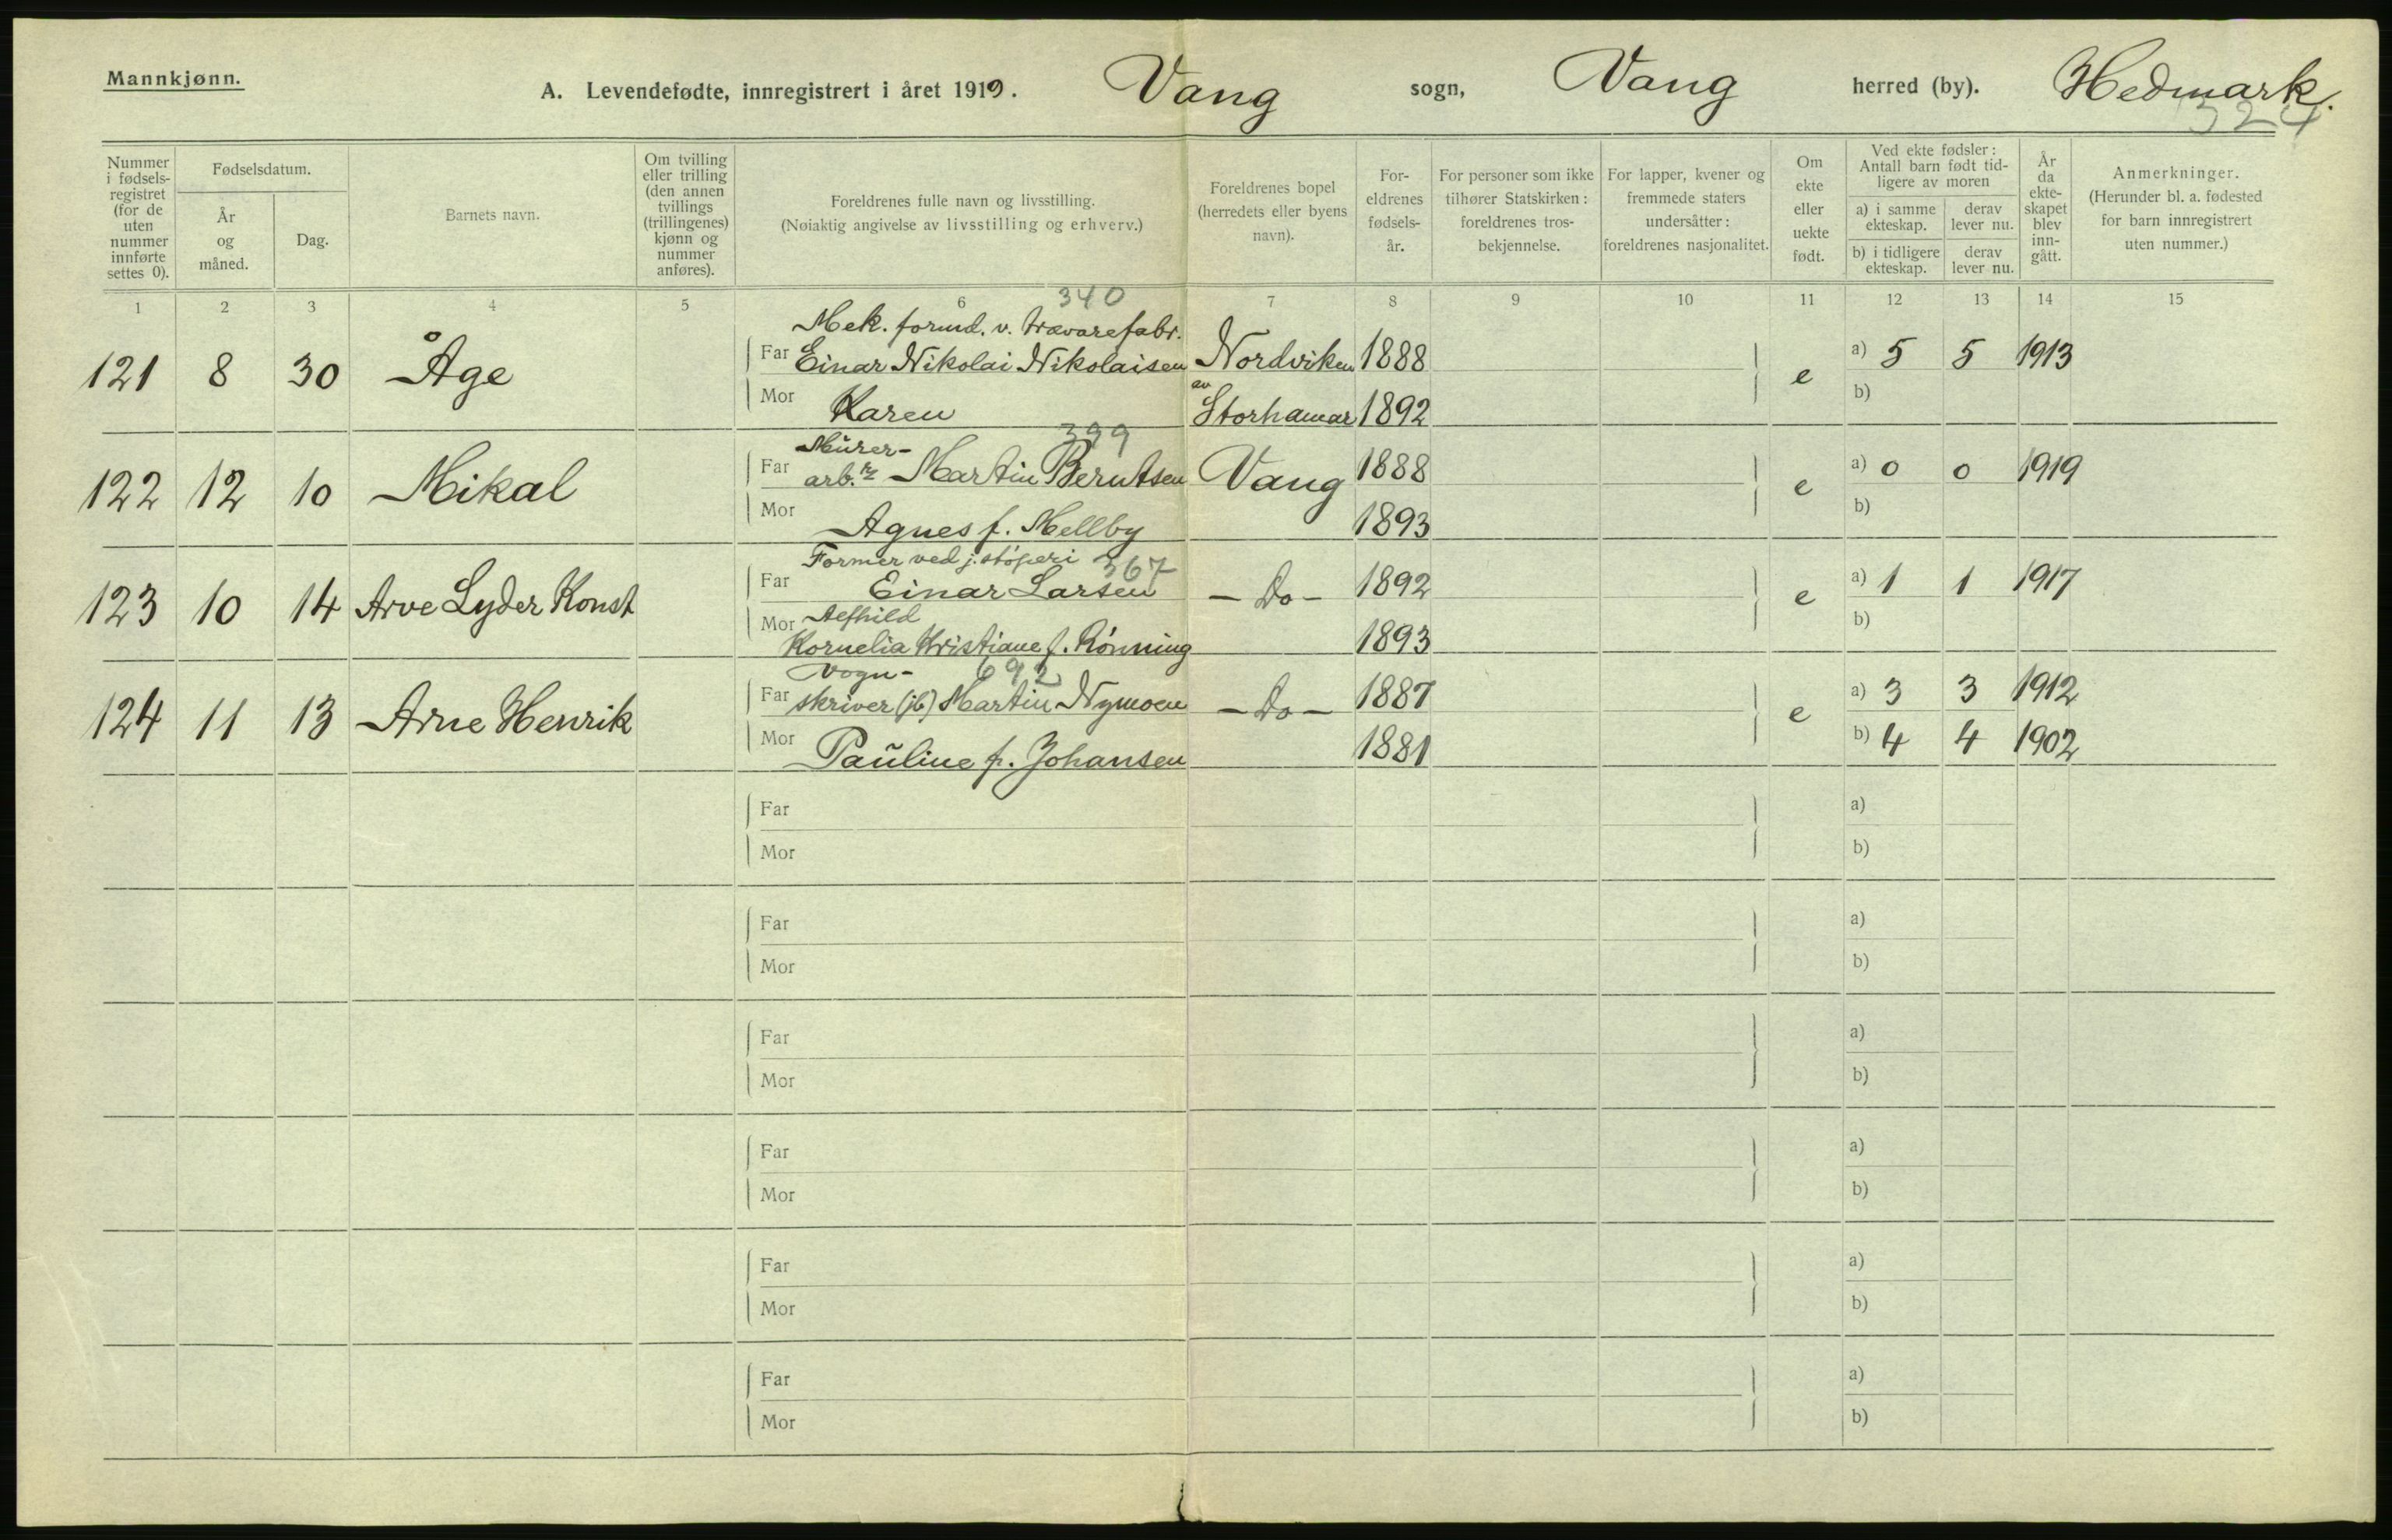 Mannkjønn.
A. Levendefødte, innregistrert i året 1919. Vang sogn, Vang herred (by). Hedmark.
324
Nummer i fødsels-registret (for de uten nummer innførte settes 0).
Fødselsdatum.
År og måned.
Dag.
Barnets navn.
Om tvilling eller trilling (den annen tvillings (trillingenes) kjønn og nummer anføres).
Foreldrenes fulle navn og livsstilling.
(Nøiaktig angivelse av livsstilling og erhverv.)
Foreldrenes bopel (herredets eller byens navn).
For-eldrenes fødsels-år.
For personer som ikke tilhører Statskirken: foreldrenes tros-bekjennelse.
For lapper, kvener og fremmede staters undersåtter: foreldrenes nasjonalitet.
Om ekte eller uekte født.
Ved ekte fødsler: Antall barn født tid-ligere av moren
a) i samme ekteskap.
derav lever nu.
b) i tidligere ekteskap.
derav lever nu.
År da ekte-skapet blev inn-gått.
Anmerkninger.
(Herunder bl. a. fødested for barn innregistrert uten nummer.)
1 2 3 4 5 6 7 8 9 10 11 12 13 14 15
340
Mek. formd. v. trævarefabr.
121 8 30 Åge Far Einar Nikolai Nikolaisen Nordviken 1888 e a) 5 5 1913
Mor Karen av Storhamar 1892 b)
399
Murer-
122 12 10 Mikal Far arb.r Martin Berntsen Vang 1888 e a) 0 0 1919
Mor Agnes f. Mellby 1893 b)
Former ved j.støperi 367
123 10 14 Arve Lyder Konst Far Einar Larsen - Do - 1892 e a) 1 1 1917
Mor Kornelia Kristiane f. Rønning 1893 b)
Vogn- 692
124 11 13 Arne Henrik Far skriver (jb) Martin Nymoen - Do - 1887 e a) 3 3 1912
Mor Pauline f. Johansen 1881 b) 4 4 1902
Far a)
Mor b)
Far a)
Mor b)
Far a)
Mor b)
Far a)
Mor b)
Far a)
Mor b)
Far a)
Mor b)